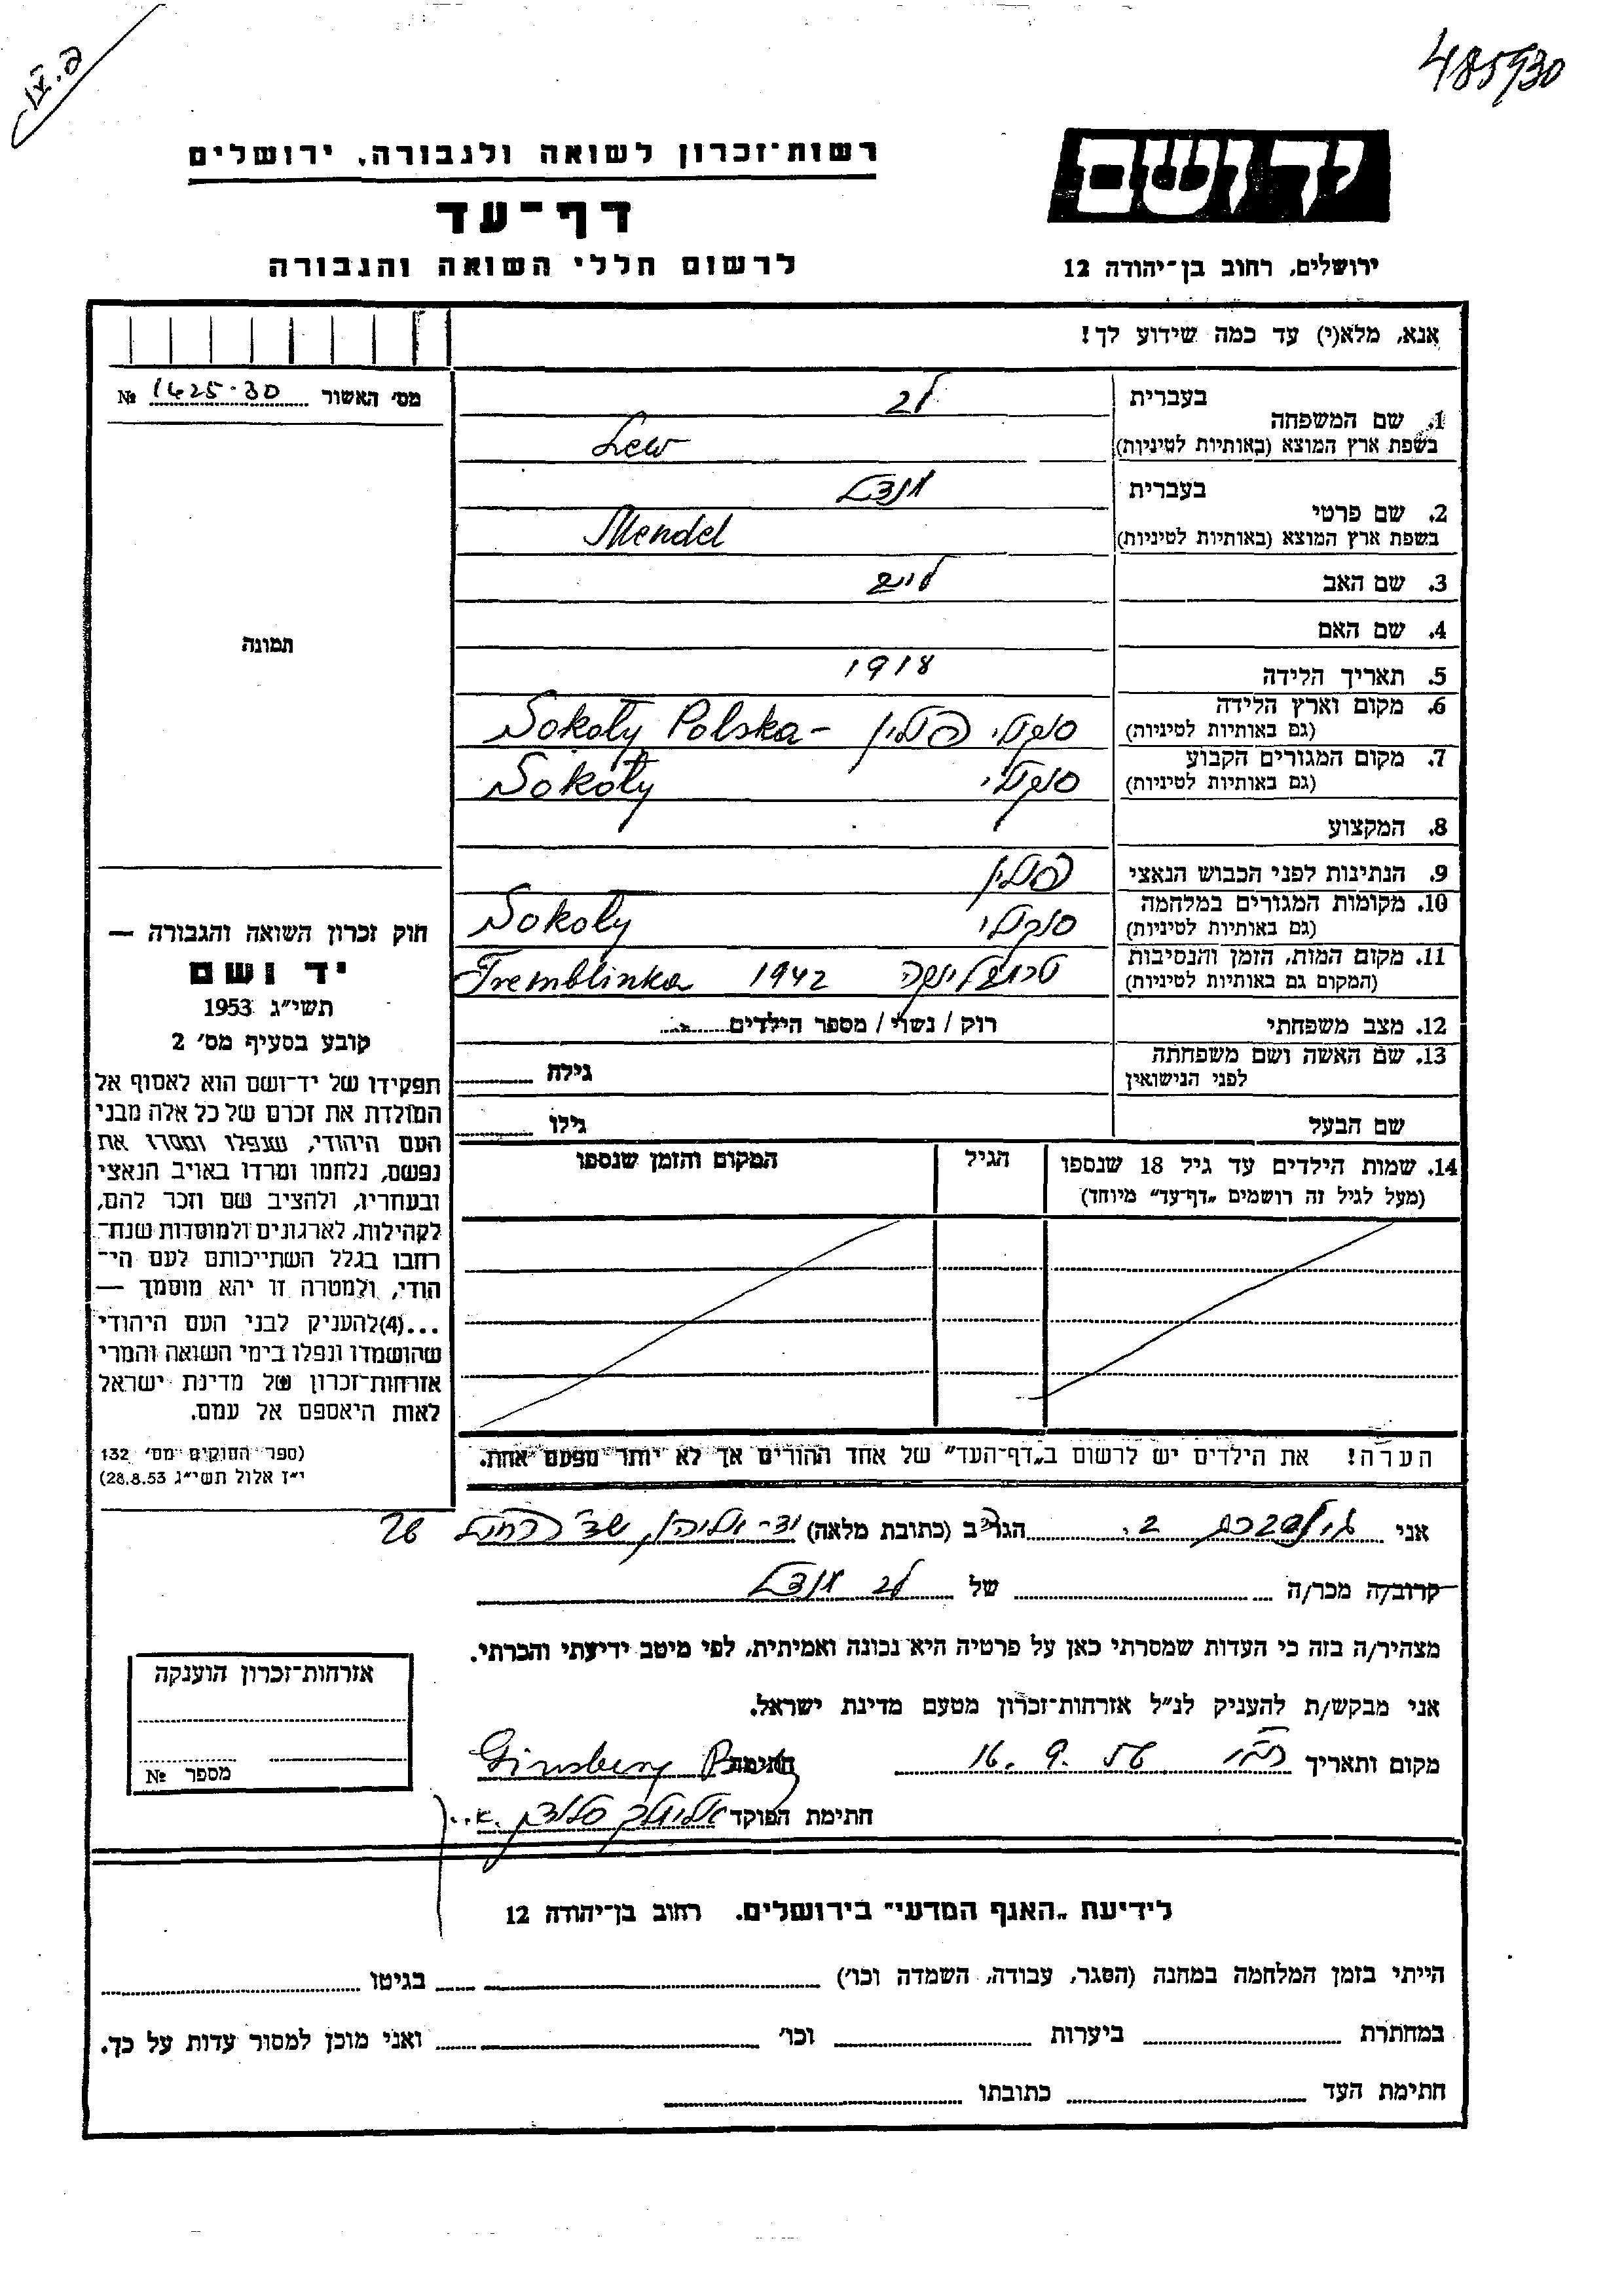 485930
רשות־זכרון לשואה ולגבורה, ירושלים
דף־עד
לרשום חללי השואה והגבורה
יד ושם
ירושלים, רחוב בן־יהודה 12
אנא, מלא(י) עד כמה שידוע לך!
מס׳ האשור № 1625-30
תמונה
1. שם המשפחה בעברית לב
בשפת ארץ המוצא (באותיות לטיניות) Lew
2. שם פרטי בעברית מנדל
בשפת ארץ המוצא (באותיות לטיניות) Mendel
3. שם האב
4. שם האם
5. תאריך הלידה 1918
6. מקום וארץ הלידה סוקולי פולין – Sokoły Polska
(גם באותיות לטיניות)
7. מקום המגורים הקבוע סוקולי Sokoły
(גם באותיות לטיניות)
8. המקצוע
9. הנתינות לפני הכבוש הנאצי פולין
10. מקומות המגורים במלחמה סוקולי Sokoly
(גם באותיות לטיניות)
11. מקום המות, הזמן והנסיבות טרמבלינקה 1942 Tremblinka
(המקום גם באותיות לטיניות)
12. מצב משפחתי רוק / נשוי / מספר הילדים
13. שם האשה ושם משפחתה גילה
לפני הנישואין
שם הבעל גילו
14. שמות הילדים עד גיל 18 שנספו הגיל המקום והזמן שנספו
(מעל לגיל זה רושמים „דף־עד״ מיוחד)
הערה! את הילדים יש לרשום ב„דף־העד״ של אחד ההורים אך לא יותר מפעם אחת.
חוק זכרון השואה והגבורה —
יד ושם
תשי״ג 1953
קובע בסעיף מס׳ 2
תפקידו של יד־ושם הוא לאסוף אל
המולדת את זכרם של כל אלה מבני
העם היהודי, שנפלו ומסרו את
נפשם, נלחמו ומרדו באויב הנאצי
ובעוזריו, ולהציב שם וזכר להם,
לקהילות, לארגונים ולמוסדות שנח־
רבו בגלל השתייכותם לעם הי־
הודי, ולמטרה זו יהא מוסמך —
...(4) להעניק לבני העם היהודי
שהושמדו ונפלו בימי השואה והמרי
אזרחות־זכרון של מדינת ישראל
לאות היאספם אל עמם.
(ספר החוקים מס׳ 132
י״ז אלול תשי״ג 28.8.53)
אני הגר ב (כתובת מלאה) יד־אליהו
קרוב/ה מכר/ה של לב מנדל
מצהיר/ה בזה כי העדות שמסרתי כאן על פרטיה היא נכונה ואמיתית, לפי מיטב ידיעתי והכרתי.
אני מבקש/ת להעניק לנ״ל אזרחות־זכרון מטעם מדינת ישראל.
מקום ותאריך 16. 9. 56 חתימה Ginsberg
חתימת הפוקד
אזרחות־זכרון הוענקה
מספר №
לידיעת „האגף המדעי״ בירושלים. רחוב בן־יהודה 12
הייתי בזמן המלחמה במחנה (הסגר, עבודה, השמדה וכו׳) בגיטו
במחתרת ביערות וכו׳ ואני מוכן למסור עדות על כך.
חתימת העד כתובתו